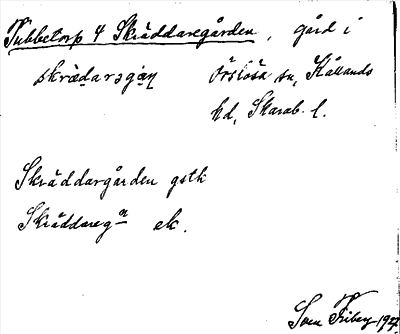 Tubbetorp 4 Skräddaregården, gård i
skrädarsgäņ Örslösa sn, Kållands
hd, Skarab. l.
Skräddargården gstk
Skräddaregn ek.
Sven Friberg 1927